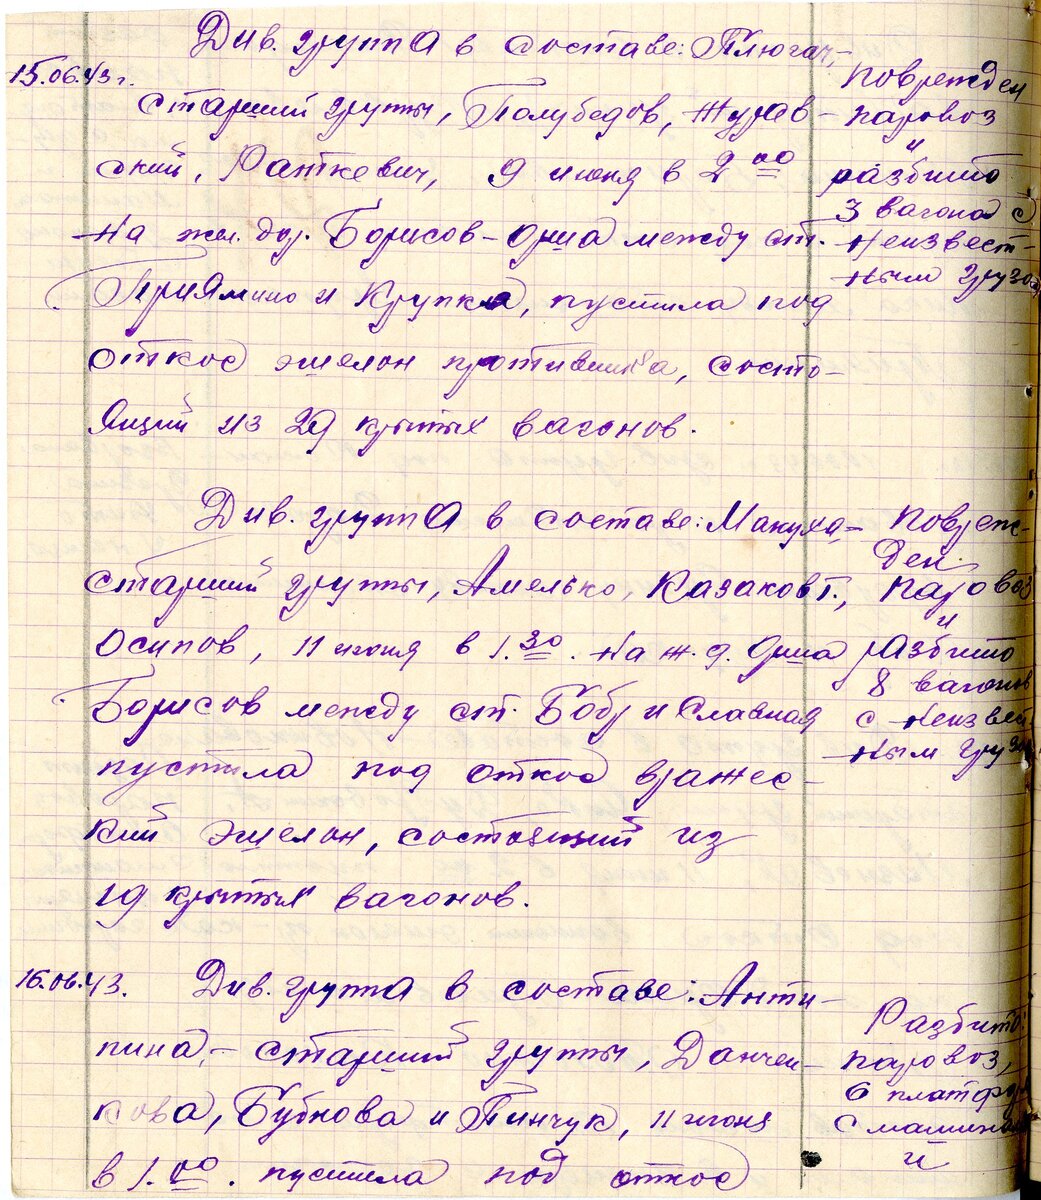 Див. группа в составе: Плюгач,-
15.06.43 г.
старший группы, Полубедов, Журав-
ский, Раткевич, 9 июня в 2 00
на жел. дор. Борисов-Орша между ст.
Приямино и Крупка, пустила под
откос эшелон противника, состо-
ящий из 29 крытых вагонов.
поврежден
паровоз
и
разбито
3 вагона с
неизвест-
ным грузом
Див. группа в составе: Мануха,-
старший группы, Амелько, Казаков Т.,
Осипов, 11 июня в 1.30. на ж.д. Орша
Борисов между ст. Бобр и Славная
пустила под откос вражес-
кий эшелон, состоящий из
19 крытых вагонов.
повреж-
ден
паровоз
и
разбито
8 вагонов
с неизвест
ным грузом
16.06.43.
Див. группа в составе: Анти-
пина,- старший группы, Данчен-
кова, Бубнова и Пинчук, 11 июня
в 1.00. пустила под откос
Разбито:
паровоз,
6 платфор
с машинами
и